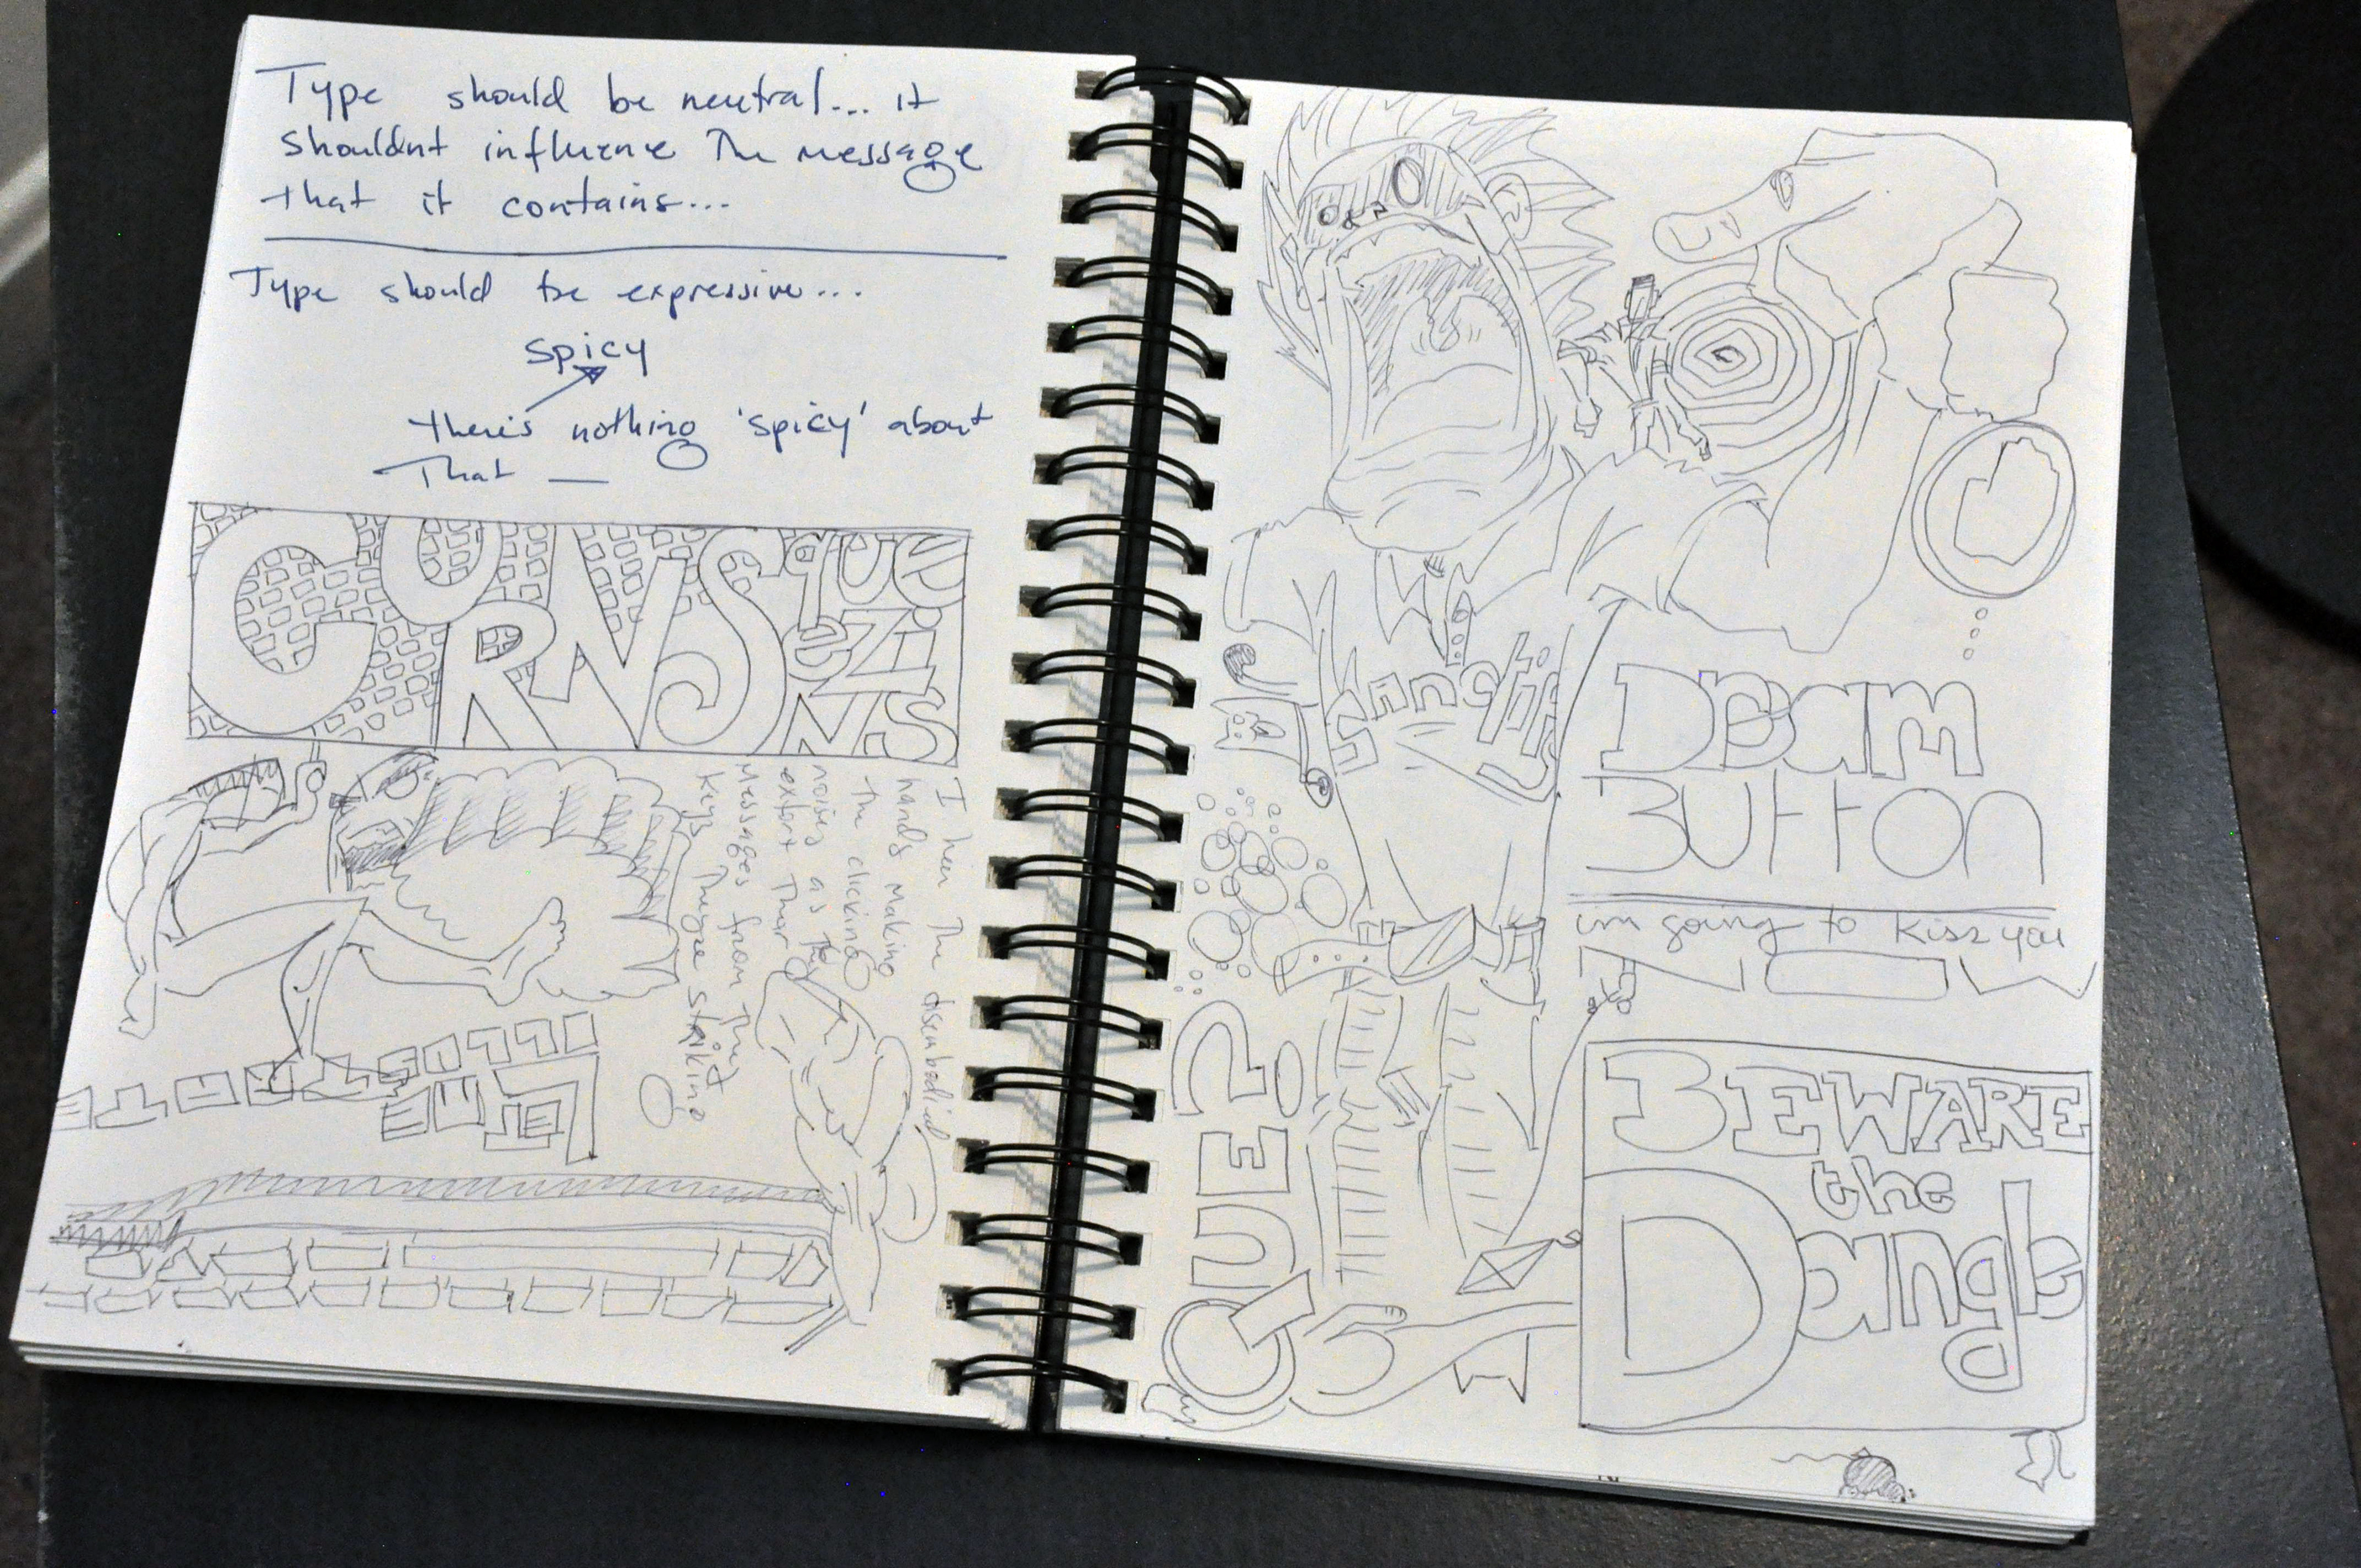 Type should be neutral... it
shouldnt influence The message
that it contains...
Type should be expressive...
spicy
there's nothing 'spicy' about
That —
CURNSqueeziNTS
I hear The disembodied
hands making
The clicking
noises as They
extort Their
Messages from They
keys They're striking
LET ME
ILLUSTRATE
Sanctify
DReam
BUTTON
im going to kiss you
QUE?
BEWARE
the
Dangle